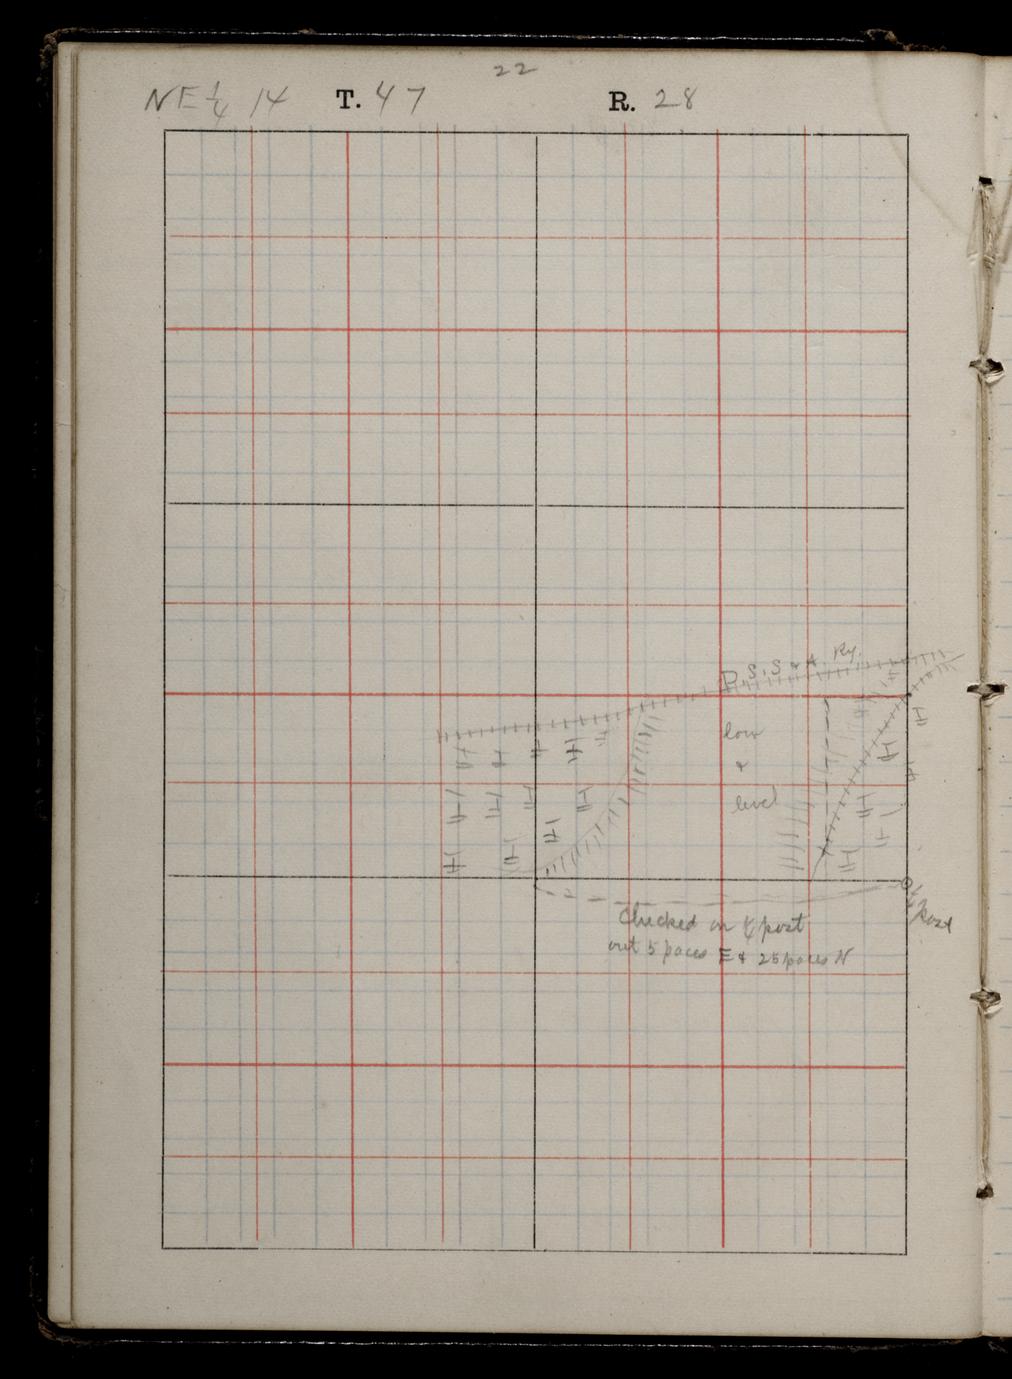 22
NE 1/4 14 T. 47 R. 28
D. S. S & A. Ry.
low
&
level
1/4 Post
Checked on 1/4 post
out 5 paces E & 25 paces N